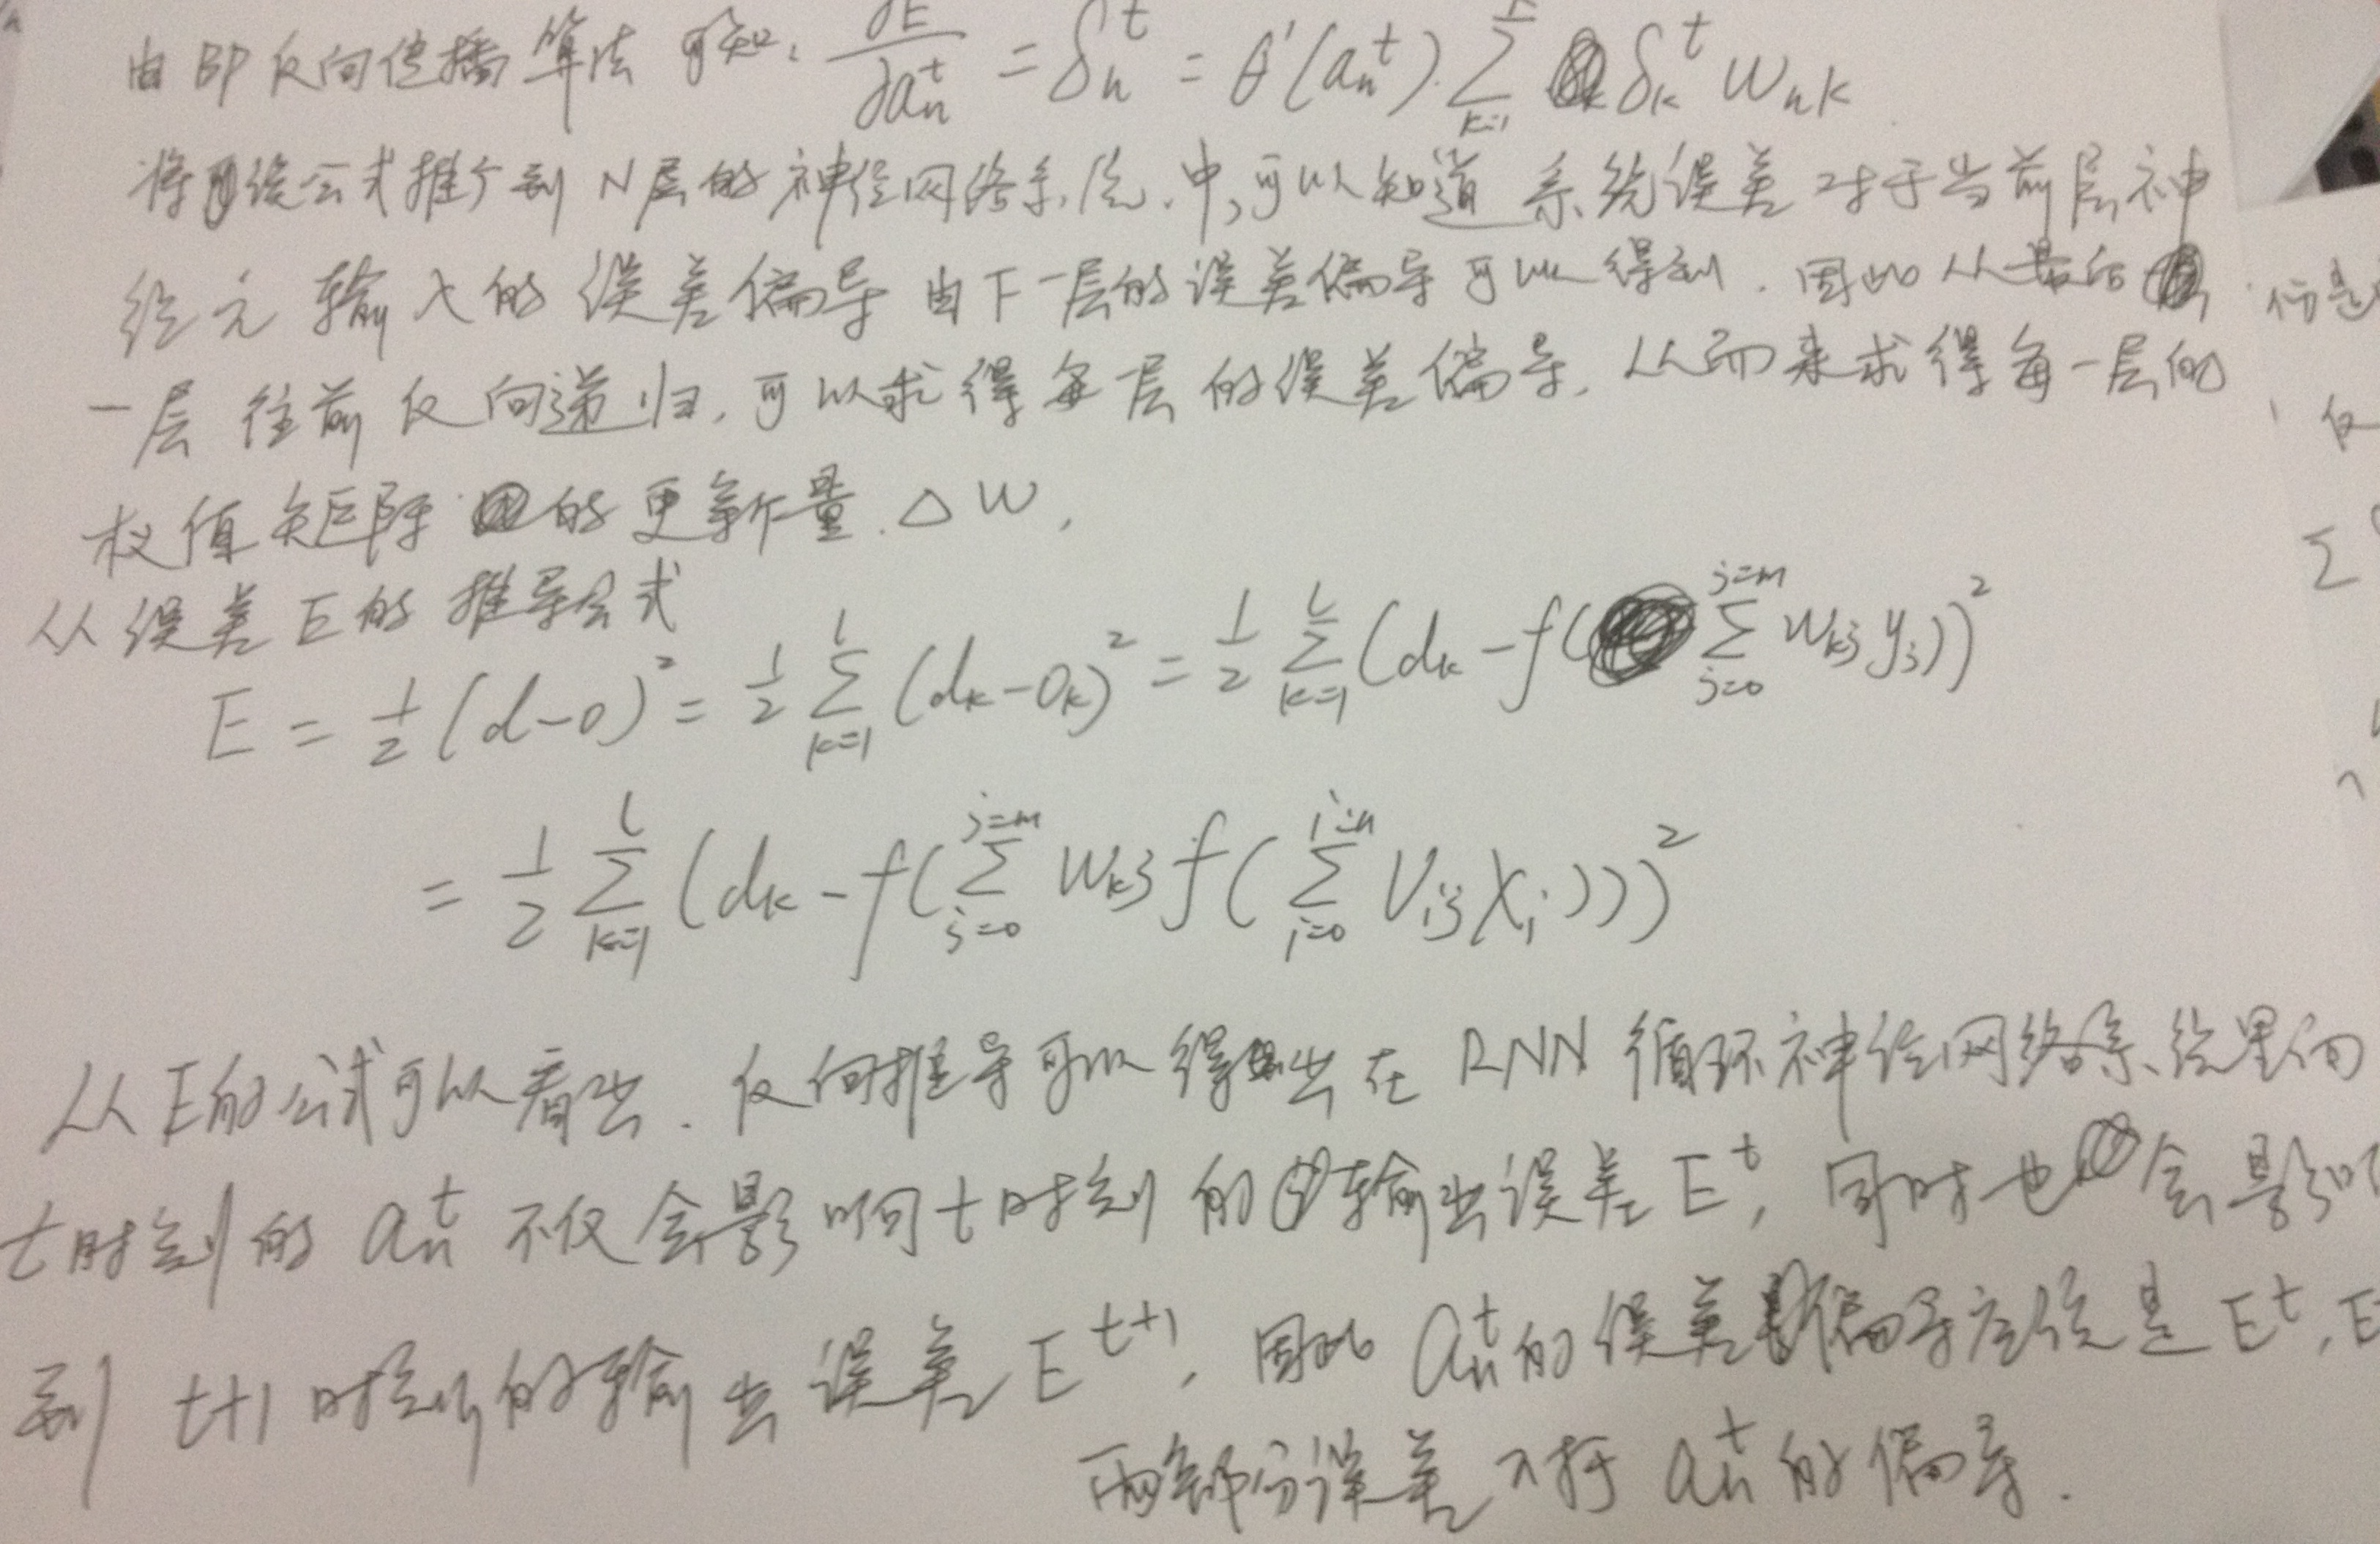 由BP反向传播算法可知: ∂E/∂a_n^t = δ_n^t = θ'(a_n^t)·∑_{k=1} δ_k^t w_{nk}
将该公式推广到N层的神经网络系统中,可以知道系统误差对于当前层神
经元输入的误差偏导由下一层的误差偏导可以得到.因此从最后
一层往前反向递归,可以求得每层的误差偏导.从而来求得每一层的
权值矩阵的更新量.△W,
从误差E的推导公式
E = 1/2 (d-o)^2 = 1/2 ∑_{k=1}^{l} (d_k-o_k)^2 = 1/2 ∑_{k=1}^{l} (d_k - f(∑_{j=0}^{j=m} w_{kj} y_j))^2
= 1/2 ∑_{k=1}^{l} (d_k - f(∑_{j=0}^{j=m} w_{kj} f(∑_{i=0}^{i=n} V_{ij} X_i)))^2
从E的公式可以看出.反向推导可以得出在RNN循环神经网络系统里面
t时刻的 a_n^t 不仅会影响t时刻的输出误差E^t,同时也会影响
到 t+1时刻的输出误差E^{t+1},因此 a_n^t 的误差偏导应该是E^t,E
两部分误差对于 a_n^t 的偏导.
仅
∑